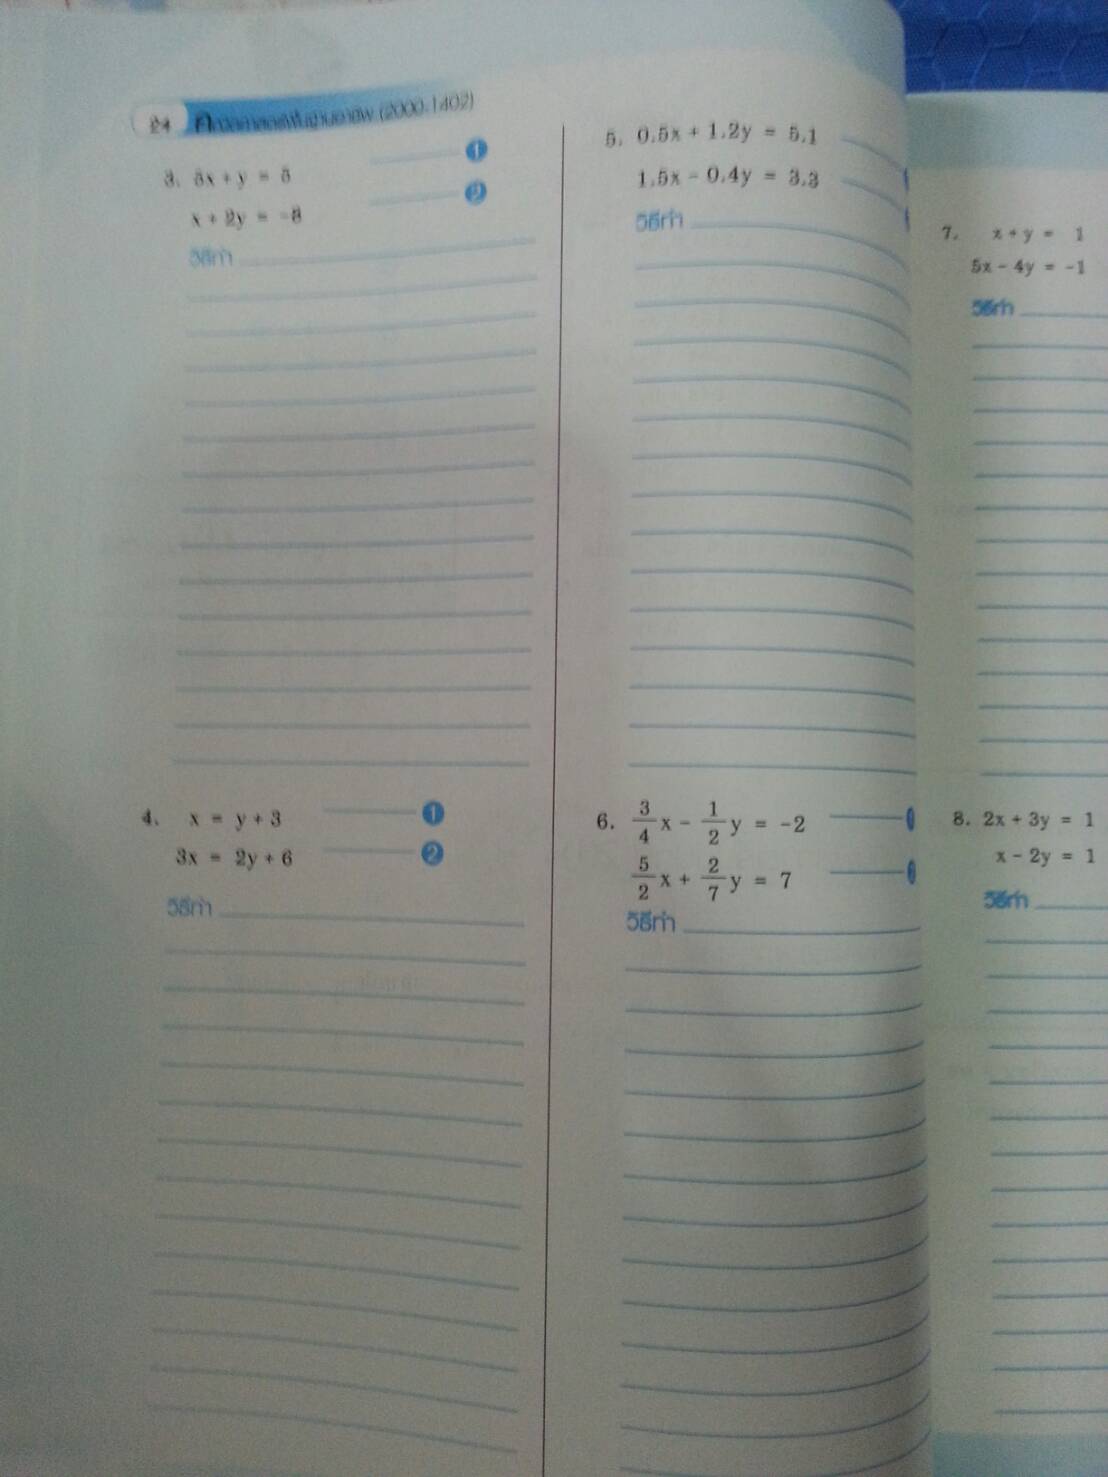 24 คณิตศาสตร์พื้นฐานอาชีพ (2000-1402)
3. 3x + y = 5 1
x + 2y = -8 2
วิธีทำ
4. x = y + 3 1
3x = 2y + 6 2
วิธีทำ
5. 0.5x + 1.2y = 5.1
1.5x - 0.4y = 3.3
วิธีทำ
6. 3/4 x - 1/2 y = -2 1
5/2 x + 2/7 y = 7 2
วิธีทำ
7. x + y = 1
5x - 4y = -1
วิธีทำ
8. 2x + 3y = 1
x - 2y = 1
วิธีทำ